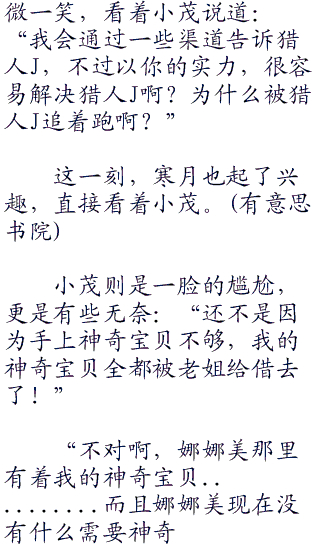 微一笑，看着小茂说道：
“我会通过一些渠道告诉猎
人J，不过以你的实力，很容
易解决猎人J啊？为什么被猎
人J追着跑啊？”
这一刻，寒月也起了兴
趣，直接看着小茂。(有意思
书院)
小茂则是一脸的尴尬，
更是有些无奈：“还不是因
为手上神奇宝贝不够，我的
神奇宝贝全都被老姐给借去
了！”
“不对啊，娜娜美那里
有着我的神奇宝贝..
........而且娜娜美现在没
有什么需要神奇